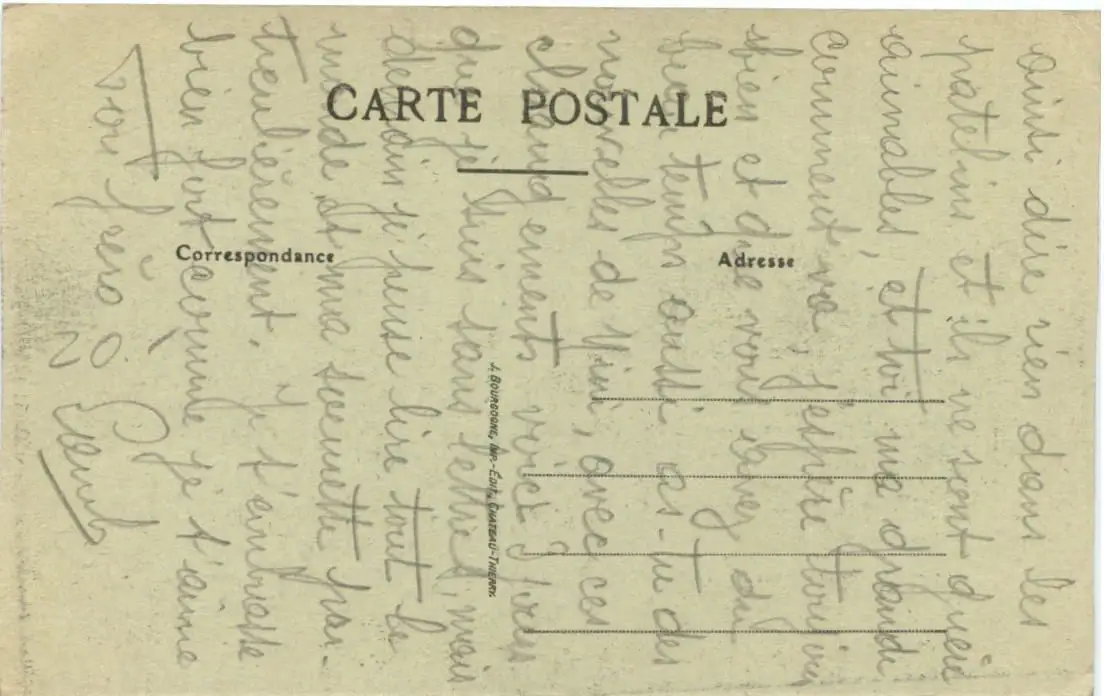 CARTE POSTALE
Correspondance
Adresse
J. BOURGOGNE, IMP.-ÉDIT. CHATEAU-THIERRY
ainsi dire rien dans les
patelins et ils ne sont guère
aimables, et toi ma grande
comment va, j'espère
bien et que vous avez du
beau temps aussi as-tu des
nouvelles de , avec ces
changements voici jours
que je suis sans lettres, mais
demain je pense lire tout le
monde et ma soeurette par-
ticulièrement. Je t'embrasse
bien fort comme je t'aime
Ton frero
Paul